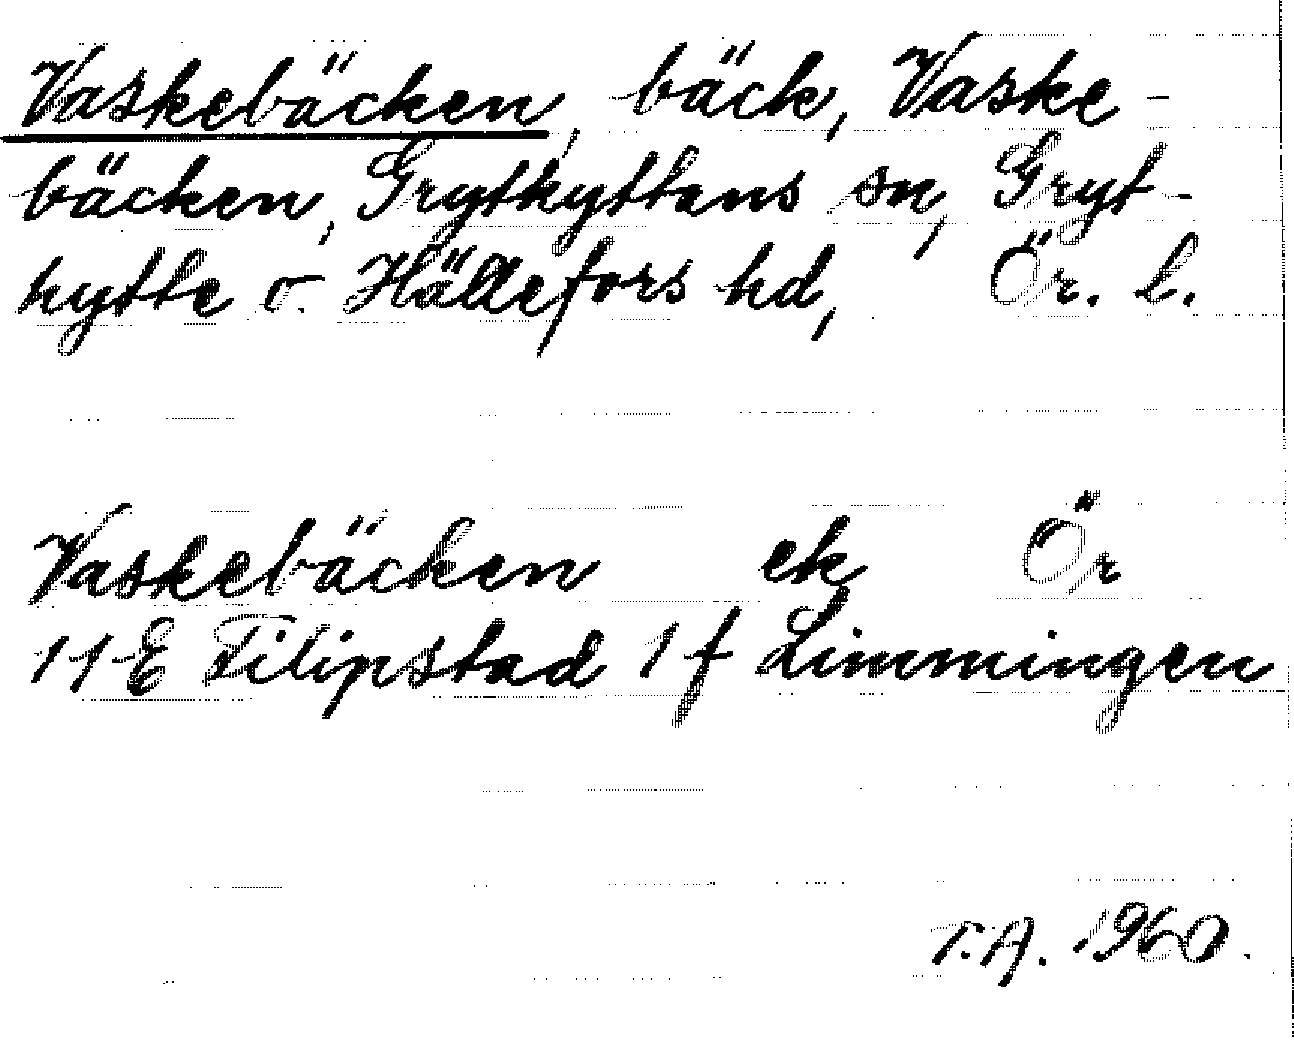 Vaskebäcken, bäck, Vaske-
bäcken, Grythyttans sn, Gryt-
hytte o. Hällefors hd, Ör. l.
Vaskebäcken ek Ör
11E Filipstad 1f Limmingen
T.A. 1960.